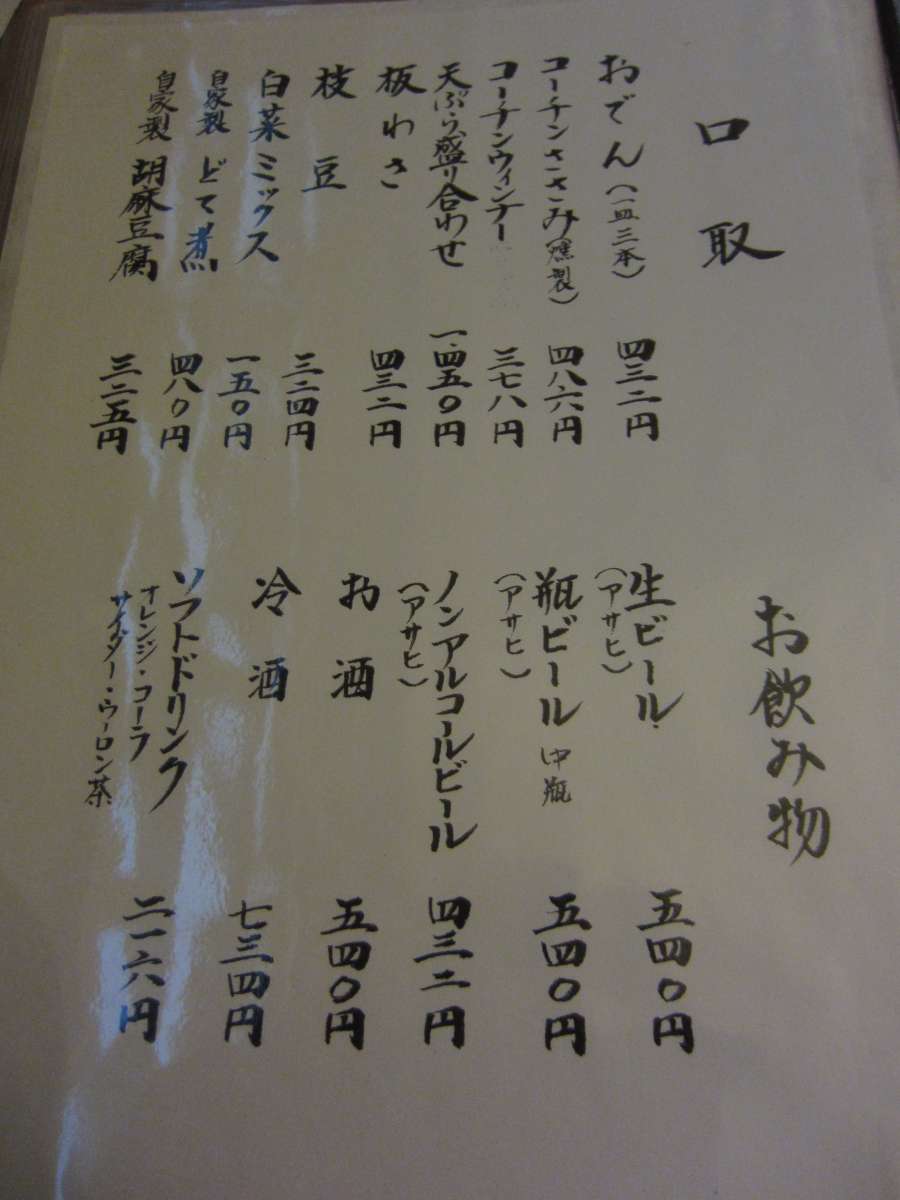 口取
おでん（一皿三本） 四三二円
コーチンささみ（燻製） 四八六円
コーチンウィンナー 三七八円
天ぷら盛り合わせ 一、四五〇円
板わさ 四三二円
枝豆 三二四円
白菜ミックス 一五〇円
自家製 どて煮 四八〇円
自家製 胡麻豆腐 三二五円
お飲み物
生ビール 五四〇円
（アサヒ）
瓶ビール 中瓶 五四〇円
（アサヒ）
ノンアルコールビール 四三二円
（アサヒ）
お酒 五四〇円
冷酒 七三四円
ソフトドリンク 二一六円
オレンジ・コーラ
サイダー・ウーロン茶